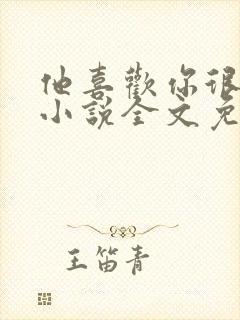 他喜歡你很
小說全文免
王笛青